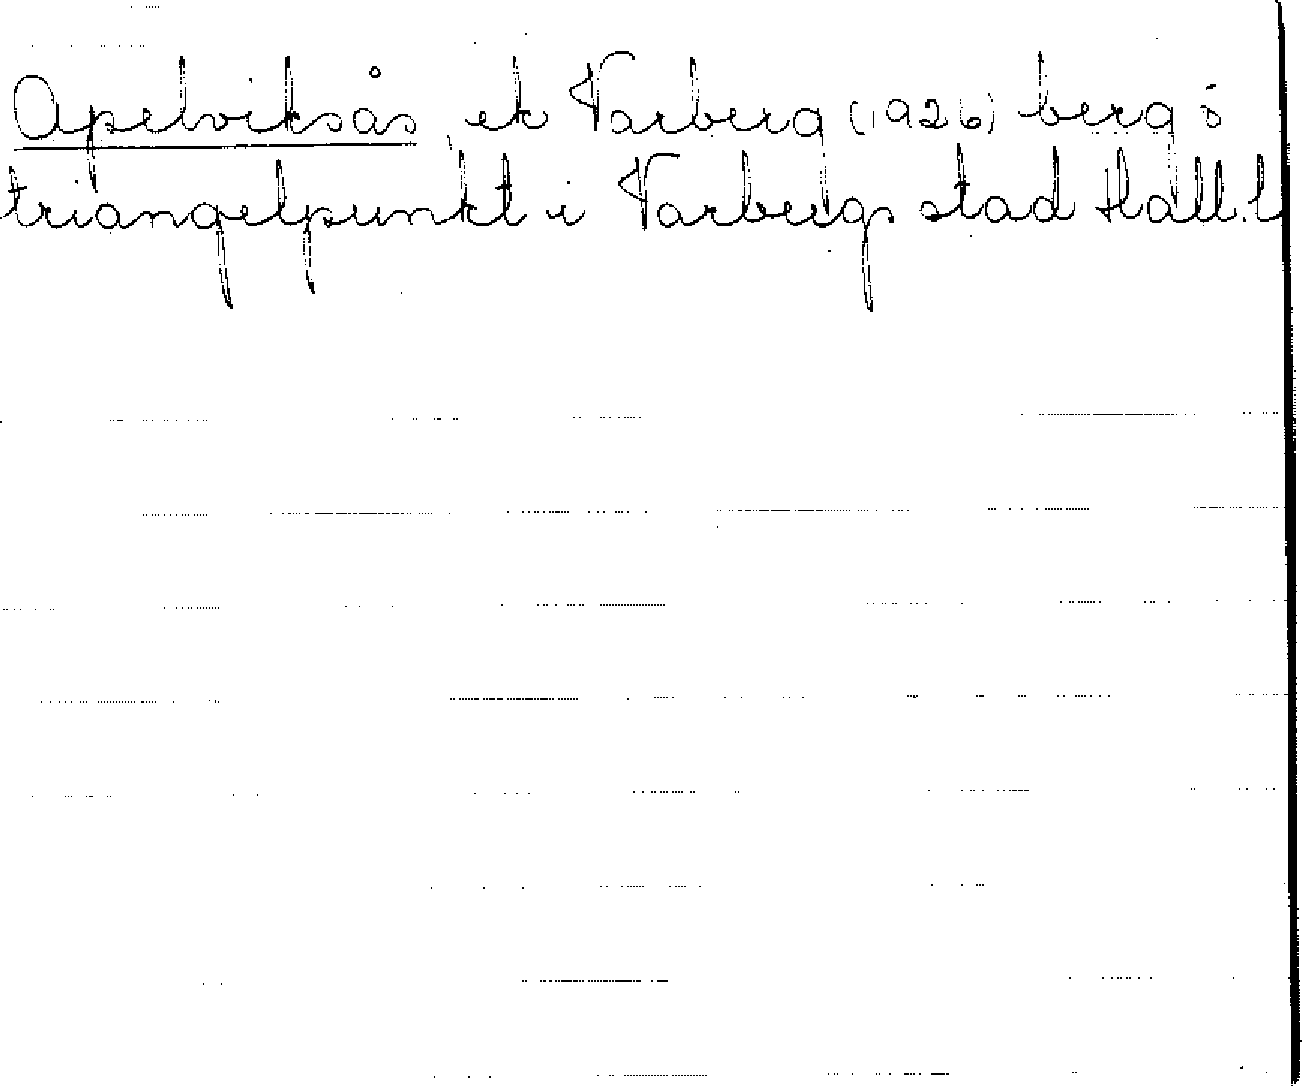 Apelviksås, ek Varberg (1926) berg o
triangelpunkt i Varbergs stad Hall. l